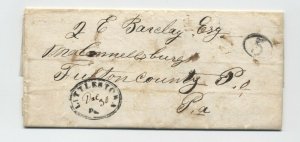 J E Barclay Esq
McConnellsburg
Fulton County P.o
Pa
5
LITTLESTOWN
Pa